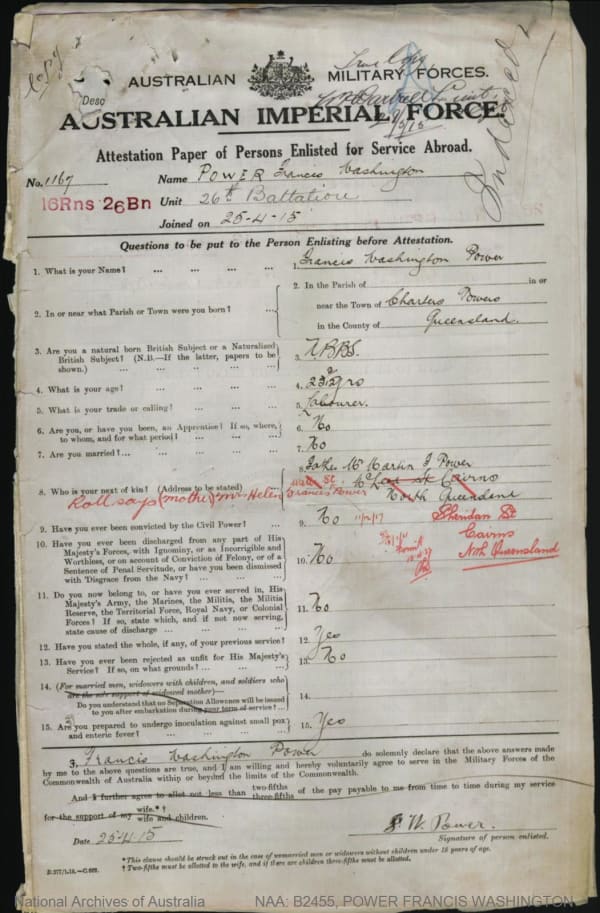 Descr
AUSTRALIAN MILITARY FORCES.
AUSTRALIAN IMPERIAL FORCE.
21/9/15
Attestation Paper of Persons Enlisted for Service Abroad.
No. 1167 Name POWER Francis Washington
16Rns 26Bn Unit 26th Battalion
Joined on 25-4-15
Questions to be put to the Person Enlisting before Attestation.
1. What is your Name? ... ... ... ... 1. Francis Washington Power
2. In or near what Parish or Town were you born? ... 2. In the Parish of in or
near the Town of Charters Towers
in the County of Queensland.
3. Are you a natural born British Subject or a Naturalized British Subject? (N.B.—If the latter, papers to be shown.) ... ... ... ... 3. N.B.B.S.
4. What is your age? ... ... ... ... 4. yrs
5. What is your trade or calling? ... ... ... 5. Labourer.
6. Are you, or have you been, an Apprentice? If so, where, to whom, and for what period? ... ... ... 6. No
7. Are you married? ... ... ... ... 7. No
8. Who is your next of kin? (Address to be stated) 8. Father Mr Martin J Power
St Cairns
North Queensland
Roll says (mother) Mrs Helen Frances Power
Sheridan St
Cairns
Nth Queensland
9. Have you ever been convicted by the Civil Power? ... 9. No 11/12/17
10. Have you ever been discharged from any part of His Majesty's Forces, with Ignominy, or as Incorrigible and Worthless, or on account of Conviction of Felony, or of a Sentence of Penal Servitude, or have you been dismissed with Disgrace from the Navy? ... ... ... 10. No
11. Do you now belong to, or have you ever served in, His Majesty's Army, the Marines, the Militia, the Militia Reserve, the Territorial Force, Royal Navy, or Colonial Forces? If so, state which, and if not now serving, state cause of discharge ... ... ... 11. No
12. Have you stated the whole, if any, of your previous service? 12. Yes
13. Have you ever been rejected as unfit for His Majesty's Service? If so, on what grounds? ... ... 13. No
14. (For married men, widowers with children, and soldiers who are the sole support of widowed mother)—
Do you understand that no Separation Allowance will be issued to you after embarkation during your term of service? ... 14.
15. Are you prepared to undergo inoculation against small pox and enteric fever? ... ... ... ... 15. Yes
I, Francis Washington Power do solemnly declare that the above answers made
by me to the above questions are true, and I am willing and hereby voluntarily agree to serve in the Military Forces of the
Commonwealth of Australia within or beyond the limits of the Commonwealth.
And I further agree to allot not less than two-fifths three-fifths of the pay payable to me from time to time during my service
for the support of my wife.* † wife and children.
Date 25-4-15 F. W. Power.
Signature of person enlisted.
* This clause should be struck out in the case of unmarried men or widowers without children under 18 years of age.
† Two-fifths must be allotted to the wife, and if there are children three-fifths must be allotted.
D.577/1.15.—C.692.
National Archives of Australia NAA: B2455, POWER FRANCIS WASHINGTON